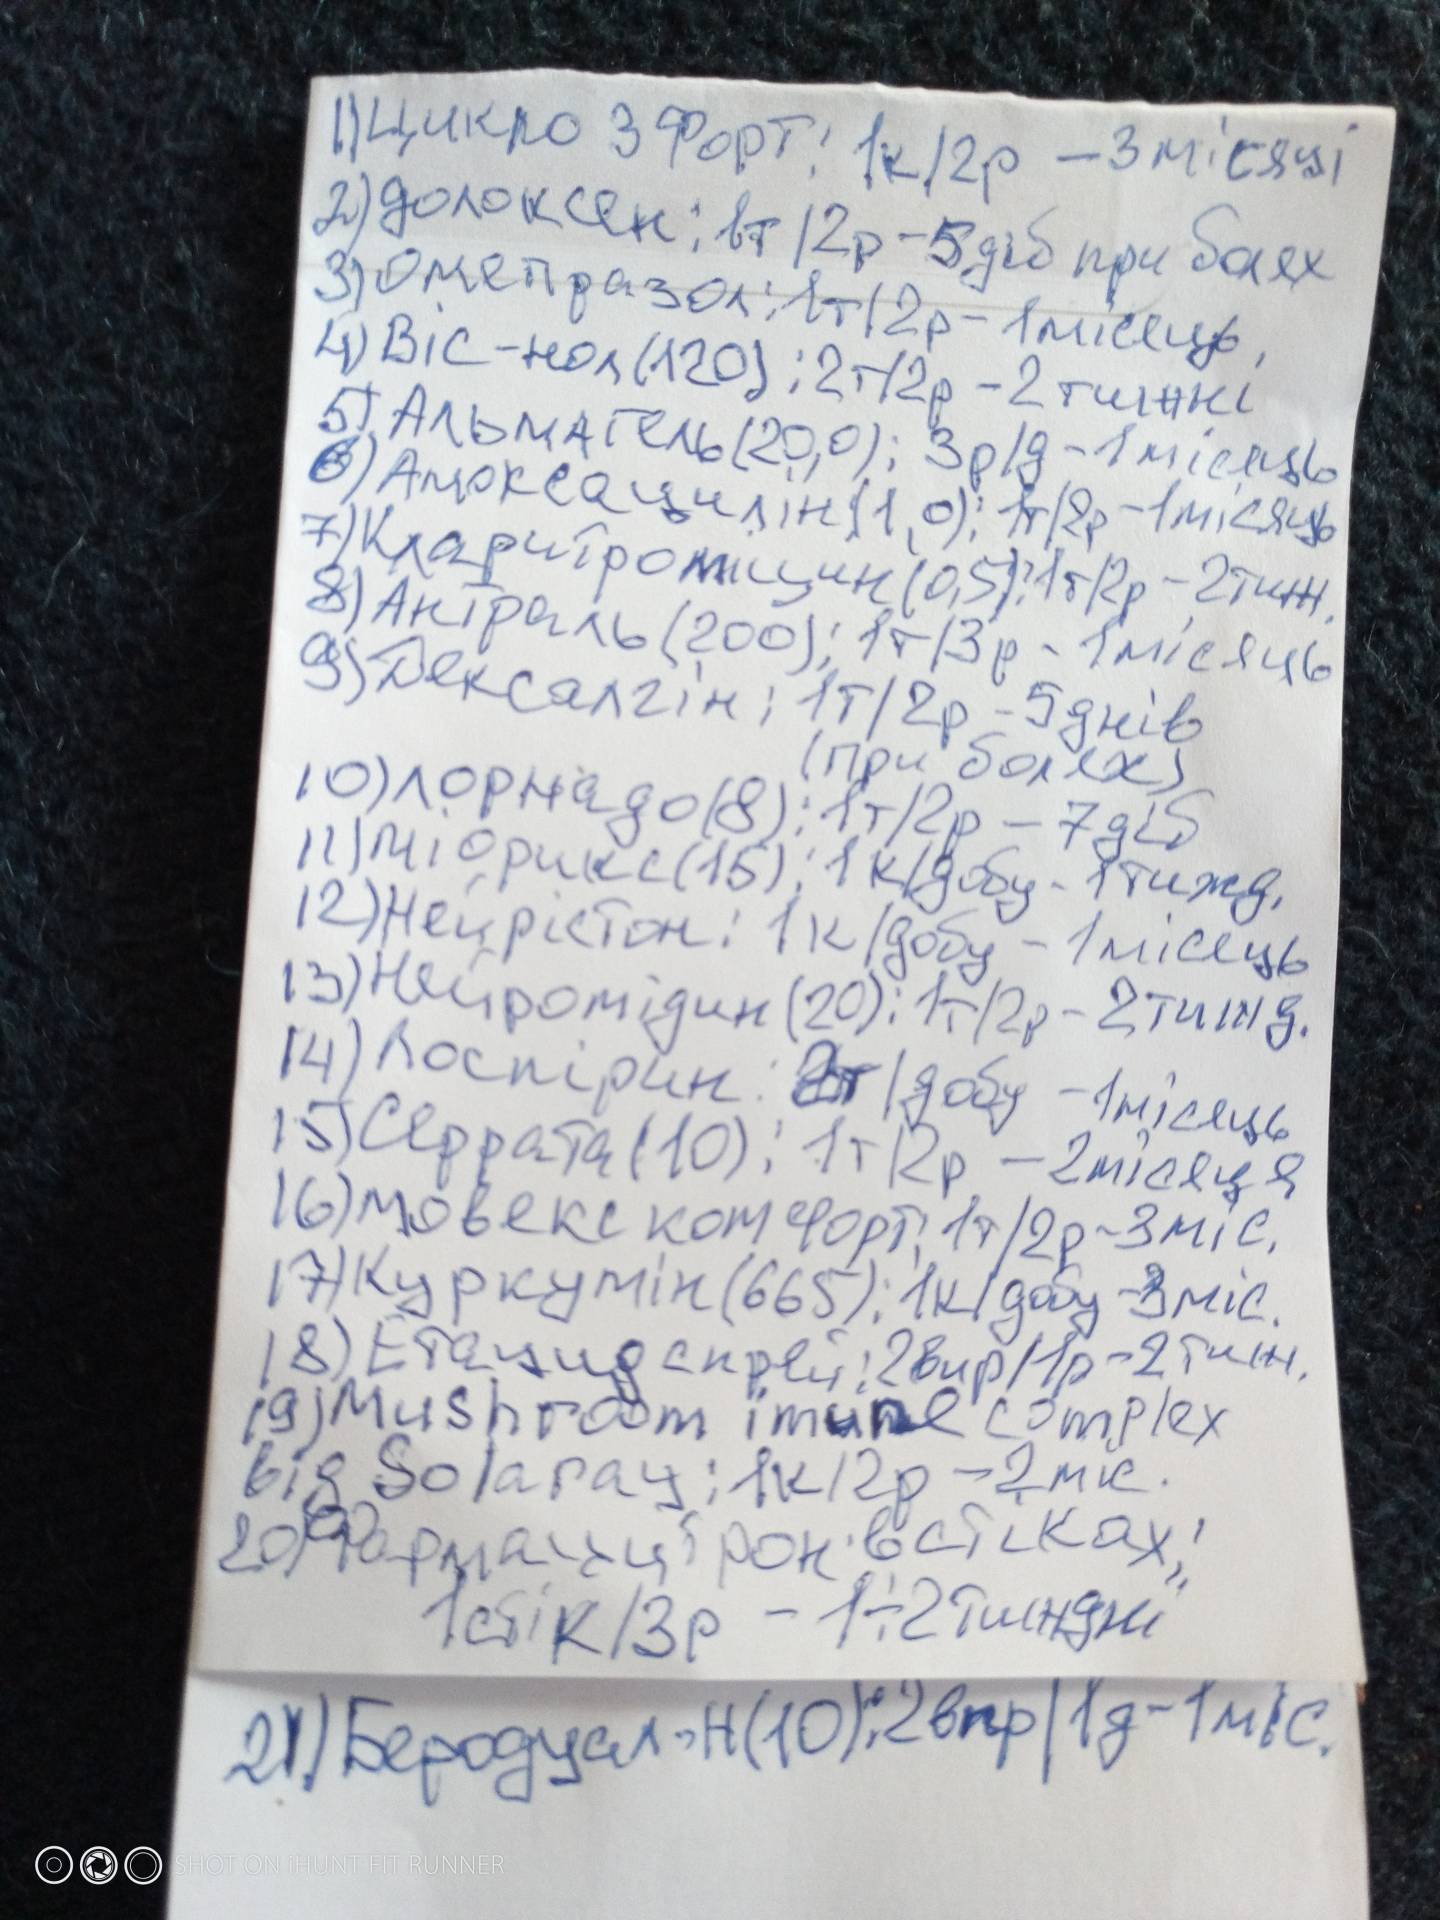 1) Цикло 3 Форт: 1к/2р – 3 місяці
2) Долоксен: 1т/2р – 5 діб при болях
3) Омепразол: 1т/2р – 1 місяць,
4) Віс-нол (120): 2т/2р – 2 тижні
5) Альмагель (20,0): 3р/д – 1 місяць
6) Амоксацилін (1,0): 1т/2р – 1 місяць
7) Кларитроміцин (0,5): 1т/2р – 2 тиж.
8) Антраль (200): 1т/3р – 1 місяць
9) Дексалгін: 1т/2р – 5 днів
(при болях)
10) Лорнадо (8): 1т/2р – 7 діб
11) Міорикс (15): 1к/добу – 1 тижд.
12) Нейрістон: 1к/добу – 1 місяць
13) Нейромідин (20): 1т/2р – 2 тижд.
14) Лоспірин: 2т/добу – 1 місяць
15) Серрата (10): 1т/2р – 2 місяця
16) Мовекс комфорт: 1т/2р – 3 міс.
17) Куркумін (665): 1к/добу – 3 міс.
18) Етацид спрей: 2впр/1р – 2 тиж.
19) Mushroom imune complex
від Solaray: 1к/2р – 2 міс.
20) Фармацитрон в стіках;
1 стік/3р – 1÷2 тиждні
21.) Беродуал-Н (10): 2впр/1д – 1 міс.
SHOT ON iHUNT FIT RUNNER